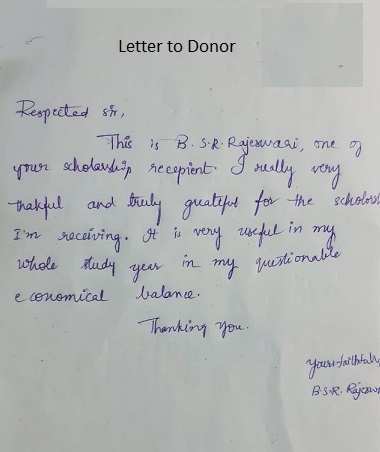 Letter to Donor
Respected sir,
This is B.S.R. Rajeswari, one of
your scholarship recepient. I really very
thakful and truly grateful for the scholars
I'm receiving. It is very useful in my
whole study year in my questionable
economical balance.
Thanking you.
Yours faithfully
B.S.R. Rajeswa